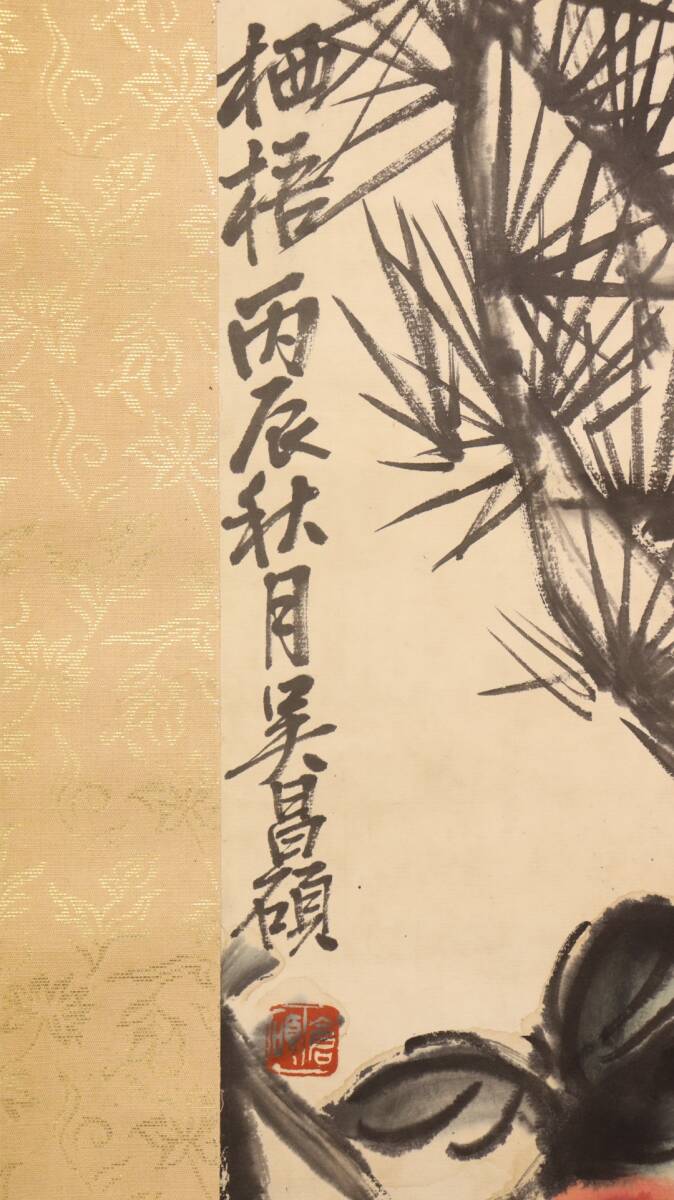 栖梧丙辰秋月吴昌碩